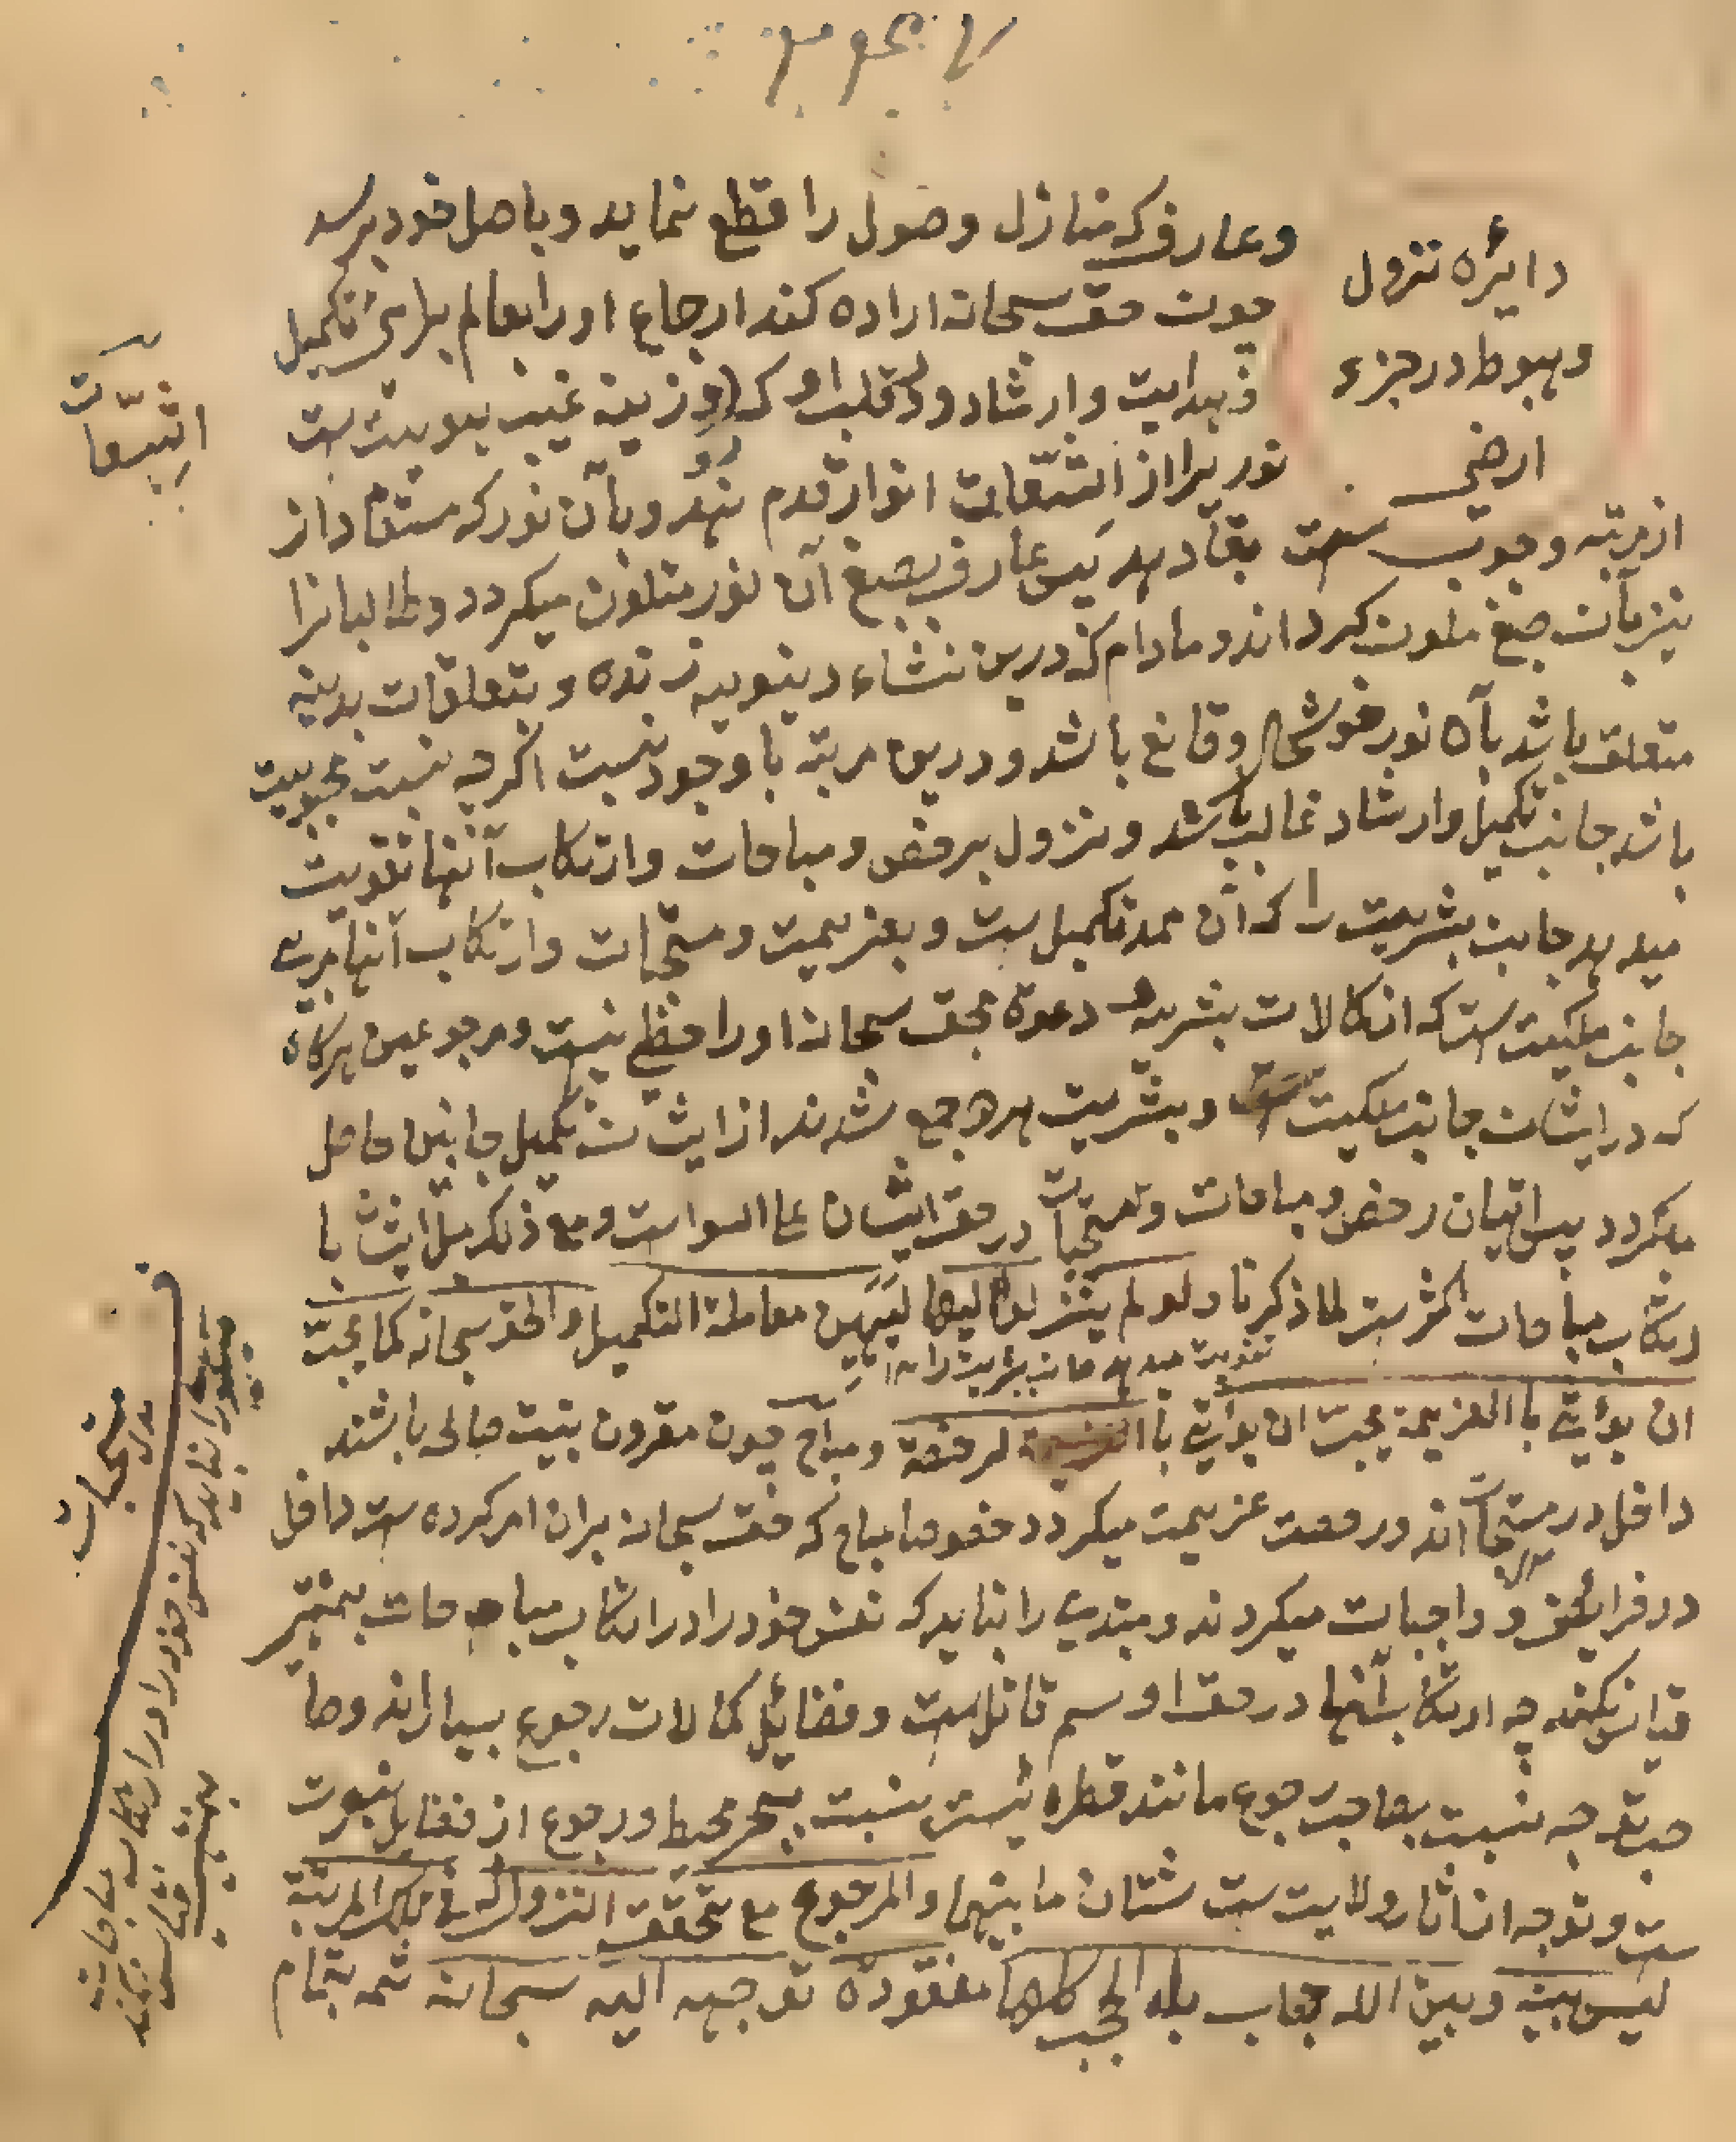 یا بحق
دایرٔه نزول
وهبوط در جزء
ارضی
وعارف که منازل وصول را قطع نماید و باصل خود برسد
چون حق سبحانه اراده کند ارجاع او را بعالم برای تکمیل
و هدایت و ارشاد در قلب او که روزینه غیب هویت ست
نوریرا از اشعات انوار قدم بنهد و بآن نور که مستفاد از
از مرتبه وجوب ست بقا دهد پس عارف بصبغ آن نور متلون میکردد و طالبانرا
نیز بآن صبغ ملون کرداند و مادام که درین نشاء دینویه زنده و بتعلقات بدنیه
متعلق باشد بآن نور خوشحال و قانع باشد و درین مرتبه با وجود نسبت اکرچه نسبت محبوبیت
باشد جانب تکمیل و ارشاد غالب باشد و نزول برخص و مباحات و ارتکاب آنها تقویت
میدهد جانب بشریت را که آن ممد تکمیل ست و بعزیمت و مستحبات و ارتکاب آنها مربی
جانب ملکیت ست که از کمالات بشریه دعوة بحق سبحانه او را حظی نیست و مرجوعین هرکاه
که در ایشان جانب ملکیت و بشریت هر دو جمع شدند از ایشان تکمیل جانبین حاصل
میکردد پس اتیان رخص و مباحات و مستحبات در حق ایشان علی السواست و مع ذلک میل ایشان با
رتکاب مباحات اکثر ست لما ذکرنا و لو لم ینزلوا الیها لیهین معاملة التکمیل والحق سبحانه کما یحبّ
تقویت میدهد جانب بشریت را
ان یؤتی با العزیمة یحبّ ان یؤتی با لرخصة و مباح چون مقرون بنیت صالحه باشند
داخل در مستحبات اند و رخصت عزیمت میکردد خصوصا مباح که حق سبحانه بران امر کرده ست داخل
در فرایض و واجبات میکردند و مبتدی را نباید که نفس خود را در ارتکاب مباحات بمنتهی
قیاس نکند چه ارتکاب آنها در حق او سم قاتل ست و فضائل کمالات رجوع بسیار اند و صا
حب توجه نسبت بصاحب رجوع مانند قطره ئیست نسبت ببحر محیط و رجوع از فضایل نبوت
ست و توجه از اثار ولایت ست شتان ما بینهما والمرجوع مع تحقق النزول له فی تلک المرتبة
لیس بینه و بین الله حجاب بل الحجب کلها مفقودة توجهه الیه سبحانه ثمه بتمام
اشعات
مستحبات
مبتدی را نباید که نفس خود را در ارتکاب مباحات
بمنتهی قیاس نکند